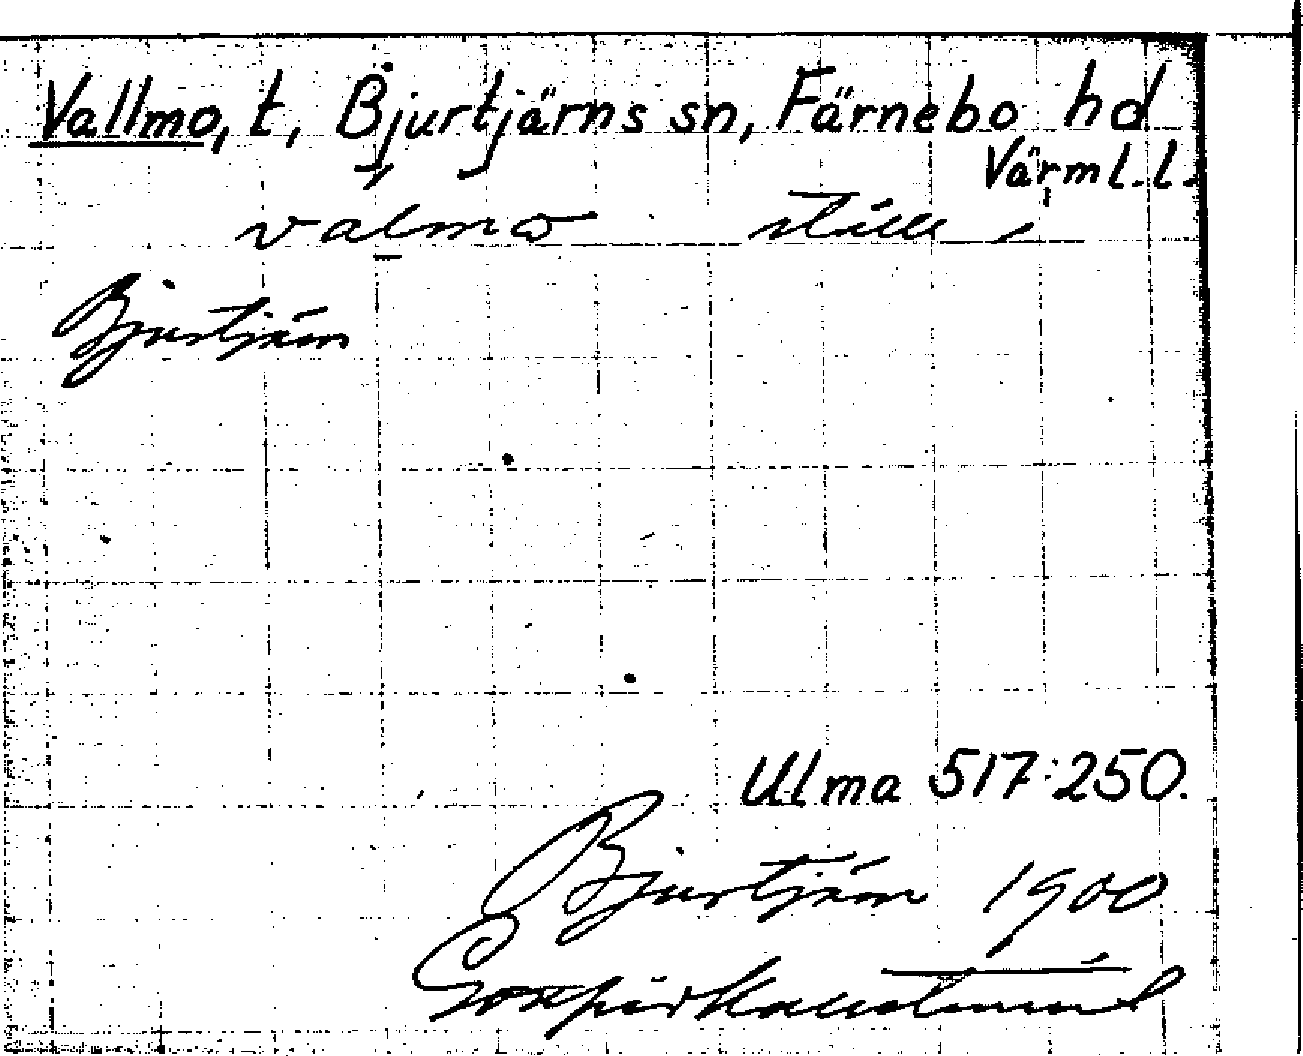 Vallmo, t, Bjurtjärns sn, Färnebo hd
Värml. l.
valmo ställe i
Bjurtjärn
Ulma 517:250.
Bjurtjärn 1900